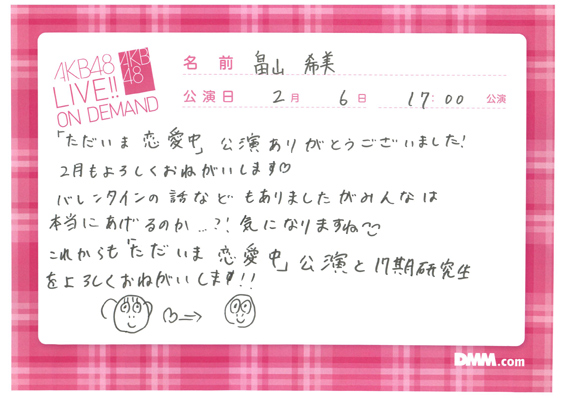 AKB48
LIVE!!
ON DEMAND
AKB
48
名前 畠山 希美
公演日 2月 6日 17:00 公演
「ただいま 恋愛中」公演ありがとうございました!
2月もよろしくおねがいします♡
バレンタインの話などもありましたがみんなは
本当にあげるのか…?! 気になりますね♡
これからも「ただいま 恋愛中」公演と17期研究生
をよろしくおねがいします!!
♡⇒
DMM.com